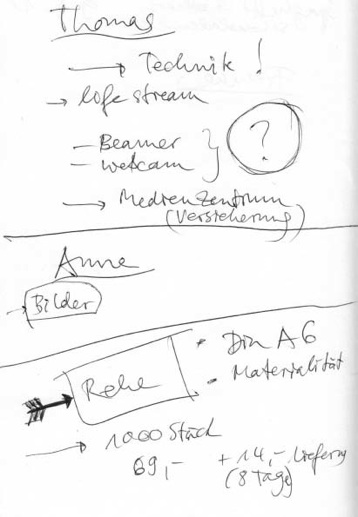 Thomas
→ Technik!
→ life stream
- Beamer
- webcam } ?
→ Medienzentrum
(Versicherung)
Anne
→ Bilder
Rehe
• Din A6
• Materialität
→ 1000 Stück
69,- + 14,- Lieferung
(8 Tage)